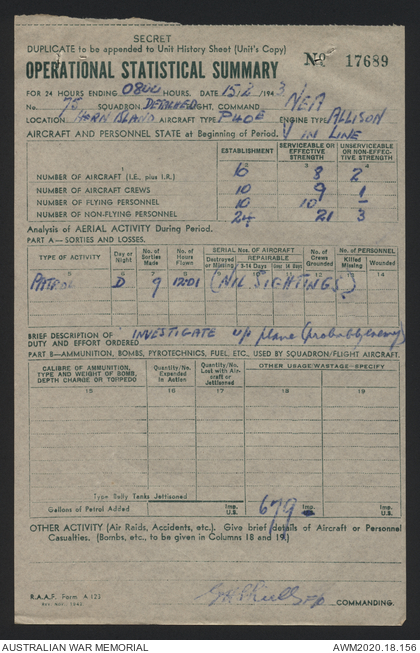 SECRET
DUPLICATE to be appended to Unit History Sheet (Unit's Copy)
OPERATIONAL STATISTICAL SUMMARY
No 17689
FOR 24 HOURS ENDING 0800 HOURS. DATE 15/2/1943
No. 75 SQUADRON DETACHED FLIGHT, COMMAND NEA
LOCATION HORN ISLAND AIRCRAFT TYPE P40E ENGINE TYPE ALLISON
AIRCRAFT AND PERSONNEL STATE at Beginning of Period. V IN LINE
ESTABLISHMENT SERVICEABLE OR EFFECTIVE STRENGTH UNSERVICEABLE OR NON-EFFECTIVE STRENGTH
NUMBER OF AIRCRAFT (I.E., plus I.R.) 10 8 2
NUMBER OF AIRCRAFT CREWS 10 9 1
NUMBER OF FLYING PERSONNEL 10 10
NUMBER OF NON-FLYING PERSONNEL 24 21 3
Analysis of AERIAL ACTIVITY During Period.
PART A—SORTIES AND LOSSES.
TYPE OF ACTIVITY Day or Night No. of Sorties Made No. of Hours Flown SERIAL Nos. OF AIRCRAFT Destroyed or Missing REPAIRABLE 3-14 Days No. of Crews Grounded No. of PERSONNEL Killed Missing Wounded
PATROL D 9 (NIL SIGHTINGS)
BRIEF DESCRIPTION OF DUTY AND EFFORT ORDERED INVESTIGATE u/i plane (probably enemy)
PART B—AMMUNITION, BOMBS, PYROTECHNICS, FUEL, ETC., USED BY SQUADRON/FLIGHT AIRCRAFT.
CALIBRE OF AMMUNITION, TYPE AND WEIGHT OF BOMB, DEPTH CHARGE OR TORPEDO Quantity/No. Expended in Action Quantity/No. Lost with Aircraft or Jettisoned OTHER USAGE/WASTAGE—SPECIFY
15 16 17 18 19
Type Belly Tanks Jettisoned
Gallons of Petrol Added Imp. U.S. 679 Imp. U.S.
OTHER ACTIVITY (Air Raids, Accidents, etc.). Give brief details of Aircraft or Personnel
Casualties. (Bombs, etc., to be given in Columns 18 and 19.)
R.A.A.F. Form A.123
COMMANDING.
AUSTRALIAN WAR MEMORIAL AWM2020.18.156